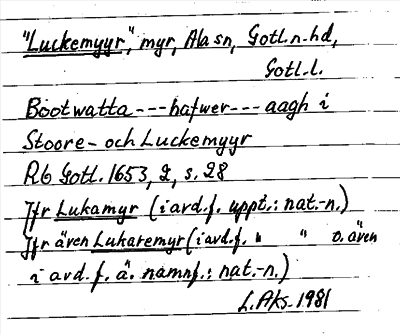 "Luckemyyr", myr, Ala sn, Gotl.n.hd,
Gotl.l.
Bootwatta --- hafwer --- aagh i
Stoore- och Luckemyyr
Rb Gotl. 1653, 2, s. 28
Jfr Lukamyr (i avd. f. uppt.: nat.-n.)
Jfr även Lukaremyr (i avd. f. " " o. även
i avd. f. ä. namnf.: nat.-n.)
L.Aks. 1981